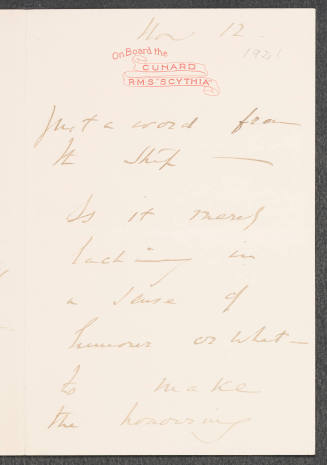 Nov 12.
1921
On Board the
CUNARD
R.M.S "SCYTHIA"
Just a word from
the ship —
Is it merely
lacking in
a sense of
humour or what —
to make
the honouring